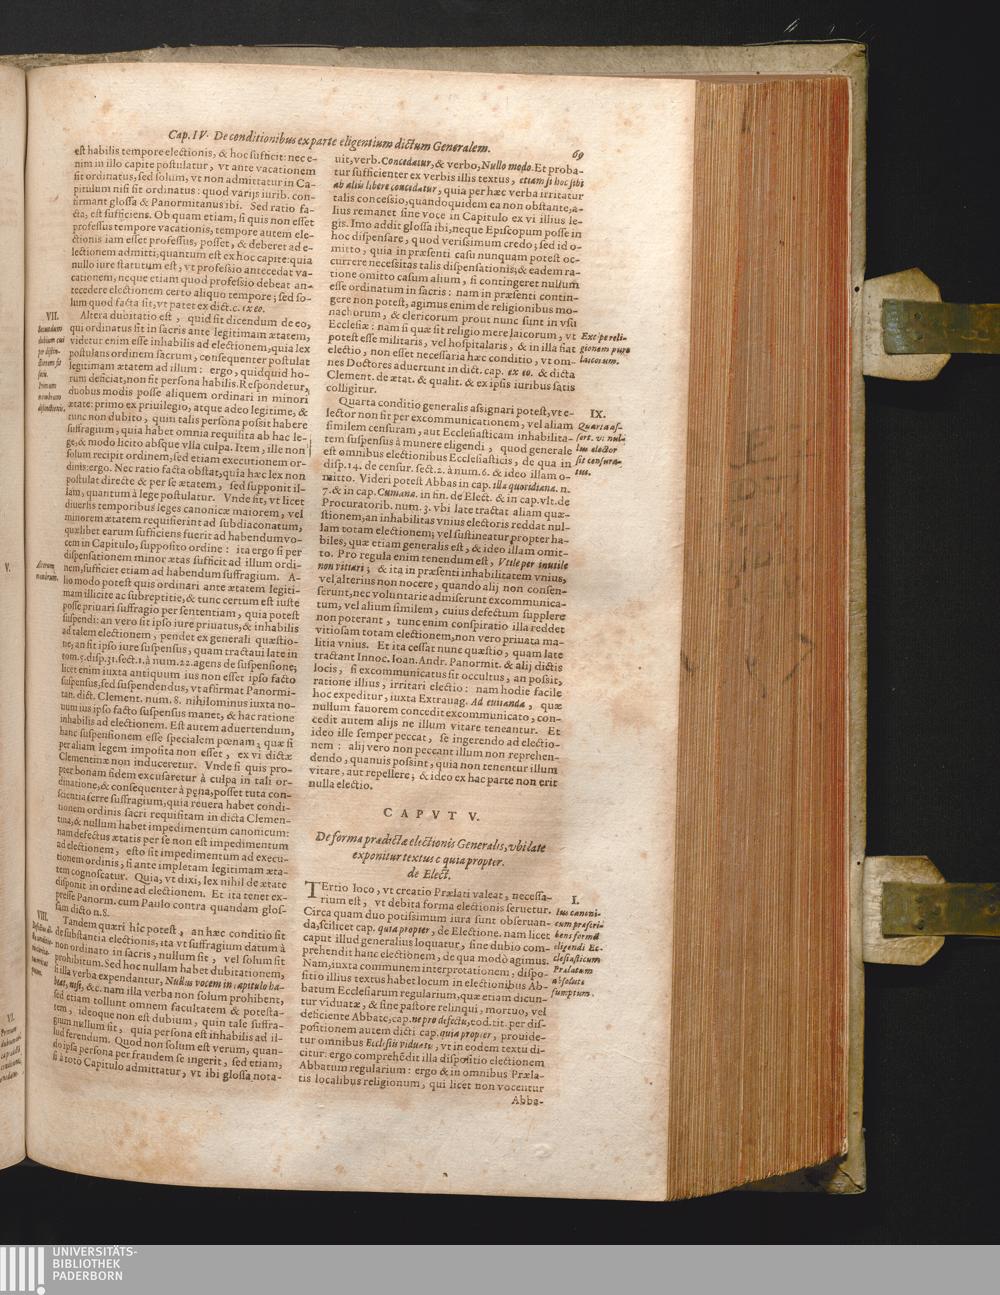 Cap. IV. De conditionibus ex parte eligentium dictum Generalem.
69
est habilis tempore electionis, & hoc sufficit: nec e-
nim in illo capite postulatur, vt ante vacationem
sit ordinatus, sed solum, vt non admittatur in Ca-
pitulum nisi sit ordinatus: quod varijs iurib. con-
firmant glossa & Panormitanus ibi. Sed ratio fa-
cta, est sufficiens. Ob quam etiam, si quis non esset
professus tempore vacationis, tempore autem ele-
ctionis iam esset professus, posset, & deberet ad e-
lectionem admitti, quantum est ex hoc capite: quia
nullo iure statutum est, vt professio antecedat va-
cationem, neque etiam quod professio debeat an-
tecedere electionem certo aliquo tempore; sed so-
lum quod facta sit, vt patet ex dict. c. ex eo.
VII.
Secundum
dubium cui
per distin-
ctionem sa
sit.
Primum
membrum
distinctionis.
Altera dubitatio est, quid sit dicendum de eo,
qui ordinatus sit in sacris ante legitimam ætatem,
videtur enim esse inhabilis ad electionem, quia lex
postulans ordinem sacrum, consequenter postulat
legitimam ætatem ad illum: ergo, quidquid ho-
rum deficiat, non sit persona habilis. Respondetur,
duobus modis posse aliquem ordinari in minori
ætate: primo ex priuilegio, atque adeo legitime, &
tunc non dubito, quin talis persona possit habere
suffragium, quia habet omnia requisita ab hac le-
ge, & modo licito absque vlla culpa. Item, ille non
solum recipit ordinem, sed etiam executionem or-
dinis: ergo. Nec ratio facta obstat, quia hæc lex non
postulat directe & per se ætatem, sed supponit il-
lam, quantum à lege postulatur. Vnde sit, vt licet
diuersis temporibus leges canonicæ maiorem, vel
minorem ætatem requisierint ad subdiaconatum,
quælibet earum sufficiens fuerit ad habendum vo-
cem in Capitulo, supposito ordine: ita ergo si per
dispensationem minor ætas sufficit ad illum ordi-
nem, sufficiet etiam ad habendum suffragium. A-
V.
Alterum
membrum.
lio modo potest quis ordinari ante ætatem legiti-
mam illicite ac subreptitie, & tunc certum est iuste
posse priuari suffragio per sententiam, quia potest
suspendi: an vero sit ipso iure priuatus, & inhabilis
ad talem electionem, pendet ex generali quæstio-
ne, an sit ipso iure suspensus, quam tractaui late in
tom. 5. disp. 31. sect. 1. à num. 22. agens de suspensione;
licet enim iuxta antiquum ius non esset ipso facto
suspensus, sed suspendendus, vt affirmat Panormi-
tan. dict. Clement. num. 8. nihilominus iuxta no-
uum ius ipso facto suspensus manet, & hac ratione
inhabilis ad electionem. Est autem aduertendum,
hanc suspensionem esse specialem pœnam, quæ si
per aliam legem imposita non esset, ex vi dictæ
Clementinæ non induceretur. Vnde si quis pro-
pter bonam fidem excusaretur à culpa in tali or-
dinatione, & consequenter à pœna, posset tuta con-
scientia ferre suffragium, quia reuera habet condi-
tionem ordinis sacri requisitam in dicta Clemen-
tina, & nullum habet impedimentum canonicum:
nam defectus ætatis per se non est impedimentum
ad electionem, esto sit impedimentum ad execu-
tionem ordinis, si ante impletam legitimam æta-
tem cognoscatur. Quia, vt dixi, lex nihil de ætate
disponit in ordine ad electionem. Et ita tenet ex-
presse Panorm. cum Paulo contra quandam glos-
sam dicto n. 8.
VIII.
Tandem quæri hic potest, an hæc conditio sit
de substantia electionis, ita vt suffragium datum à
non ordinato in sacris, nullum sit, vel solum sit
prohibitum. Sed hoc nullam habet dubitationem,
si illa verba expendantur, Nullus vocem in capitulo ha-
beat, nisi, &c. nam illa verba non solum prohibent,
sed etiam tollunt omnem facultatem & potesta-
tem, ideoque non est dubium, quin tale suffra-
gium nullum sit, quia persona est inhabilis ad il-
lud ferendum. Quod non solum est verum, quan-
do ipsa persona per fraudem se ingerit, sed etiam,
si à toto Capitulo admittatur, vt ibi glossa nota-
VI.
uit, verb. Concedatur, & verbo, Nullo modo. Et proba-
tur sufficienter ex verbis illis textus, etiamsi hoc sibi
ab aliis libere concedatur, quia per hæc verba irritatur
talis concessio, quandoquidem ea non obstante, a-
lius remanet sine voce in Capitulo ex vi illius le-
gis. Imo addit glossa ibi, neque Episcopum posse in
hoc dispensare, quod verissimum credo; sed id o-
mitto, quia in præsenti casu nunquam potest oc-
currere necessitas talis dispensationis; & eadem ra-
tione omitto casum alium, si contingeret nullum
esse ordinatum in sacris: nam in præsenti contin-
gere non potest, agimus enim de religionibus mo-
nachorum, & clericorum prout nunc sunt in vsu
Ecclesiæ: nam si quæ sit religio mere laicorum, vt
potest esse militaris, vel hospitalaris, & in illa fiat
electio, non esset necessaria hæc conditio, vt om-
nes Doctores aduertunt in dict. cap. ex eo. & dicta
Clement. de ætat. & qualit. & ex ipsis iuribus satis
colligitur.
Excipe reli-
gionem pure
laicorum.
Quarta conditio generalis assignari potest, vt e-
lector non sit per excommunicationem, vel aliam
similem censuram, aut Ecclesiasticam inhabilita-
tem suspensus à munere eligendi, quod generale
est omnibus electionibus Ecclesiasticis, de qua in
disp. 14. de censur. sect. 2. à num. 6. & ideo illam o-
mitto. Videri potest Abbas in cap. illa quotidiana. n.
7. & in cap. Cumana. in fin. de Elect. & in cap. vlt. de
Procuratorib. num. 3. vbi late tractat aliam quæ-
stionem, an inhabilitas vnius electoris reddat nul-
lam totam electionem; vel sustineatur propter ha-
biles, quæ etiam generalis est, & ideo illam omit-
to. Pro regula enim tenendum est, Vtile per inutile
non vitiari; & ita in præsenti inhabilitatem vnius,
vel alterius non nocere, quando alij non consen-
serunt, nec voluntarie admiserunt excommunica-
tum, vel alium similem, cuius defectum supplere
non poterant, tunc enim conspiratio illa reddet
vitiosam totam electionem, non vero priuata ma-
litia vnius. Et ita cessat nunc quæstio, quam late
tractant Innoc. Ioan. Andr. Panormit. & alij dictis
locis, si excommunicatus sit occultus, an possit,
ratione illius, irritari electio: nam hodie facile
hoc expeditur, iuxta Extrauag. Ad euitanda, quæ
nullum fauorem concedit excommunicato, con-
cedit autem alijs ne illum vitare teneantur. Et
ideo ille semper peccat, se ingerendo ad electio-
nem: alij vero non peccant illum non reprehen-
dendo, quanuis possint, quia non tenentur illum
vitare, aut repellere; & ideo ex hac parte non erit
nulla electio.
IX.
Quarta as-
sert. vt nul-
lus elector
sit censura-
tus.
CAPVT V.
De forma prædictæ electionis Generalis, vbi late
exponitur textus c quia propter.
de Elect.
TErtio loco, vt creatio Prælati valeat, necessa-
rium est, vt debita forma electionis seruetur.
Circa quam duo potissimum iura sunt obseruan-
da, scilicet cap. quia propter, de Electione. nam licet
caput illud generalius loquatur, sine dubio com-
prehendit hanc electionem, de qua modo agimus.
Nam, iuxta communem interpretationem, dispo-
sitio illius textus habet locum in electionibus Ab-
batum Ecclesiarum regularium, quæ etiam dicun-
tur viduatæ, & sine pastore relinqui, mortuo, vel
deficiente Abbate, cap. ne pro defectu, eod. tit. per dis-
positionem autem dicti cap. quia propter, prouide-
tur omnibus Ecclesiis viduatis, vt in eodem textu di-
citur: ergo comprehēdit illa dispositio electionem
Abbatum regularium: ergo & in omnibus Præla-
tis localibus religionum, qui licet non vocentur
Abba-
I.
Ius canoni-
cum præscri-
bens formā
eligendi Ec-
clesiasticum
Prælatum
absolute
sumptum.
UNIVERSITÄTS-
BIBLIOTHEK
PADERBORN